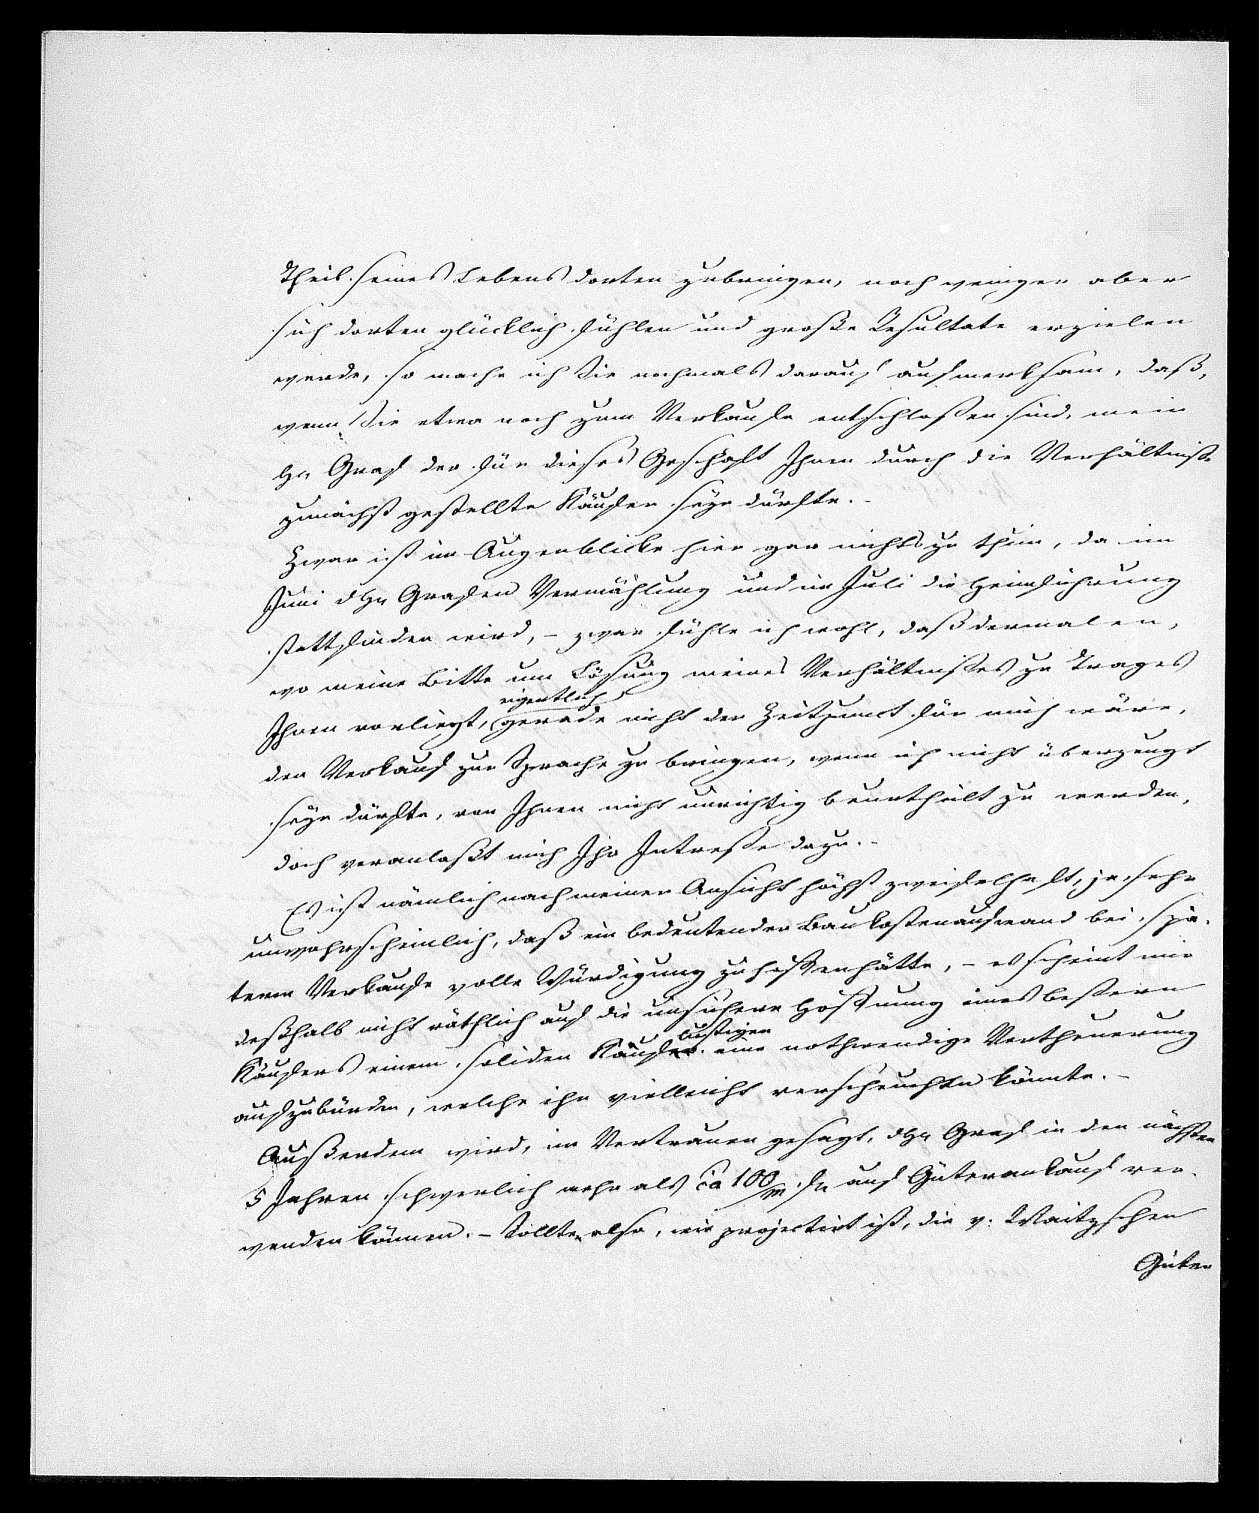 Theil seines Lebens dorten zubringen, noch weniger aber
sich dorten glücklich fühlen und große Resultate erzielen
werde, so mache ich Sie nochmals darauf aufmerksam, daß,
wenn Sie etwa noch zum Verkaufe entschloßen sind, mein
Hr Graf der für dieses Geschäft Ihnen durch die Verhältniße
zunächst gestellte Käufer seyn dürfte. -
Zwar ist im Augenblicke hier gar nichts zu thun, da im
Juni d Hn Grafen Vermählung und im Juli die Heimführung
stattfinden wird, - zwar fühle ich wohl, daß dermalen,
wo meine Bitte um Lösung meines Verhältnißes zu Trages
Ihnen vorliegt, eigentlich gerade nicht der Zeitpunct für mich wäre,
den Verkauf zur Sprache zu bringen, wenn ich nicht überzeugt
seyn dürfte, von Ihnen nicht unrichtig beurtheilt zu werden,
doch veranlaßt mich Ihr Intreße dazu. -
Es ist nämlich nach meiner Ansicht höchst zweifelhaft, ja sehr
unwahrscheinlich, daß ein bedeutender Baukostenaufwand bei spä-
term Verkaufe volle Würdigung zu hoffen hätte, - es scheint mir
deßhalb nicht räthlich auf die unsichere Hoffnung eines beßern
Käufers einem soliden Kauflustigen eine nothwendige Vertheuerung
aufzubürden, welche ihn vielleicht verscheuchen könnte. -
Außerdem wird, im Vertrauen gesagt, d Hr Graf in den nächsten
5 Jahren schwerlich mehr als ca 100/m fl auf Güterankauf ver-
wenden können. - Sollten also, wie projectirt ist, die v. Waitzschen
Güter